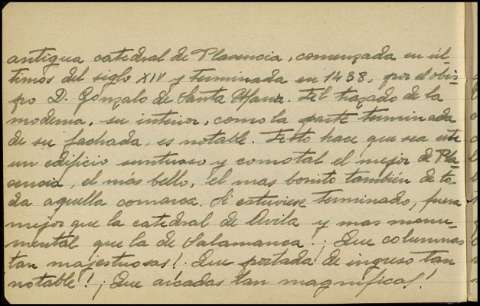 antigua catedral de Plasencia, comenzada en úl-
timos del siglo XIV y terminada en 1438, por el obis-
po D. Gonzalo de Santa María. El trazado de la
moderna, su interior, como la parte terminada
de su fachada, es notable. Esto hace que sea este
un edificio suntuoso y como tal el mejor de Pla-
sencia, el más bello, el mas bonito tambien de to-
da aquella comarca. Si estuviese terminado, fuera
mejor que la catedral de Avila y mas monu-
mental que la de Salamanca. ¡Que columnas
tan majestuosas! Que portada de ingreso tan
notable! ¡Que arcadas tan magníficas!